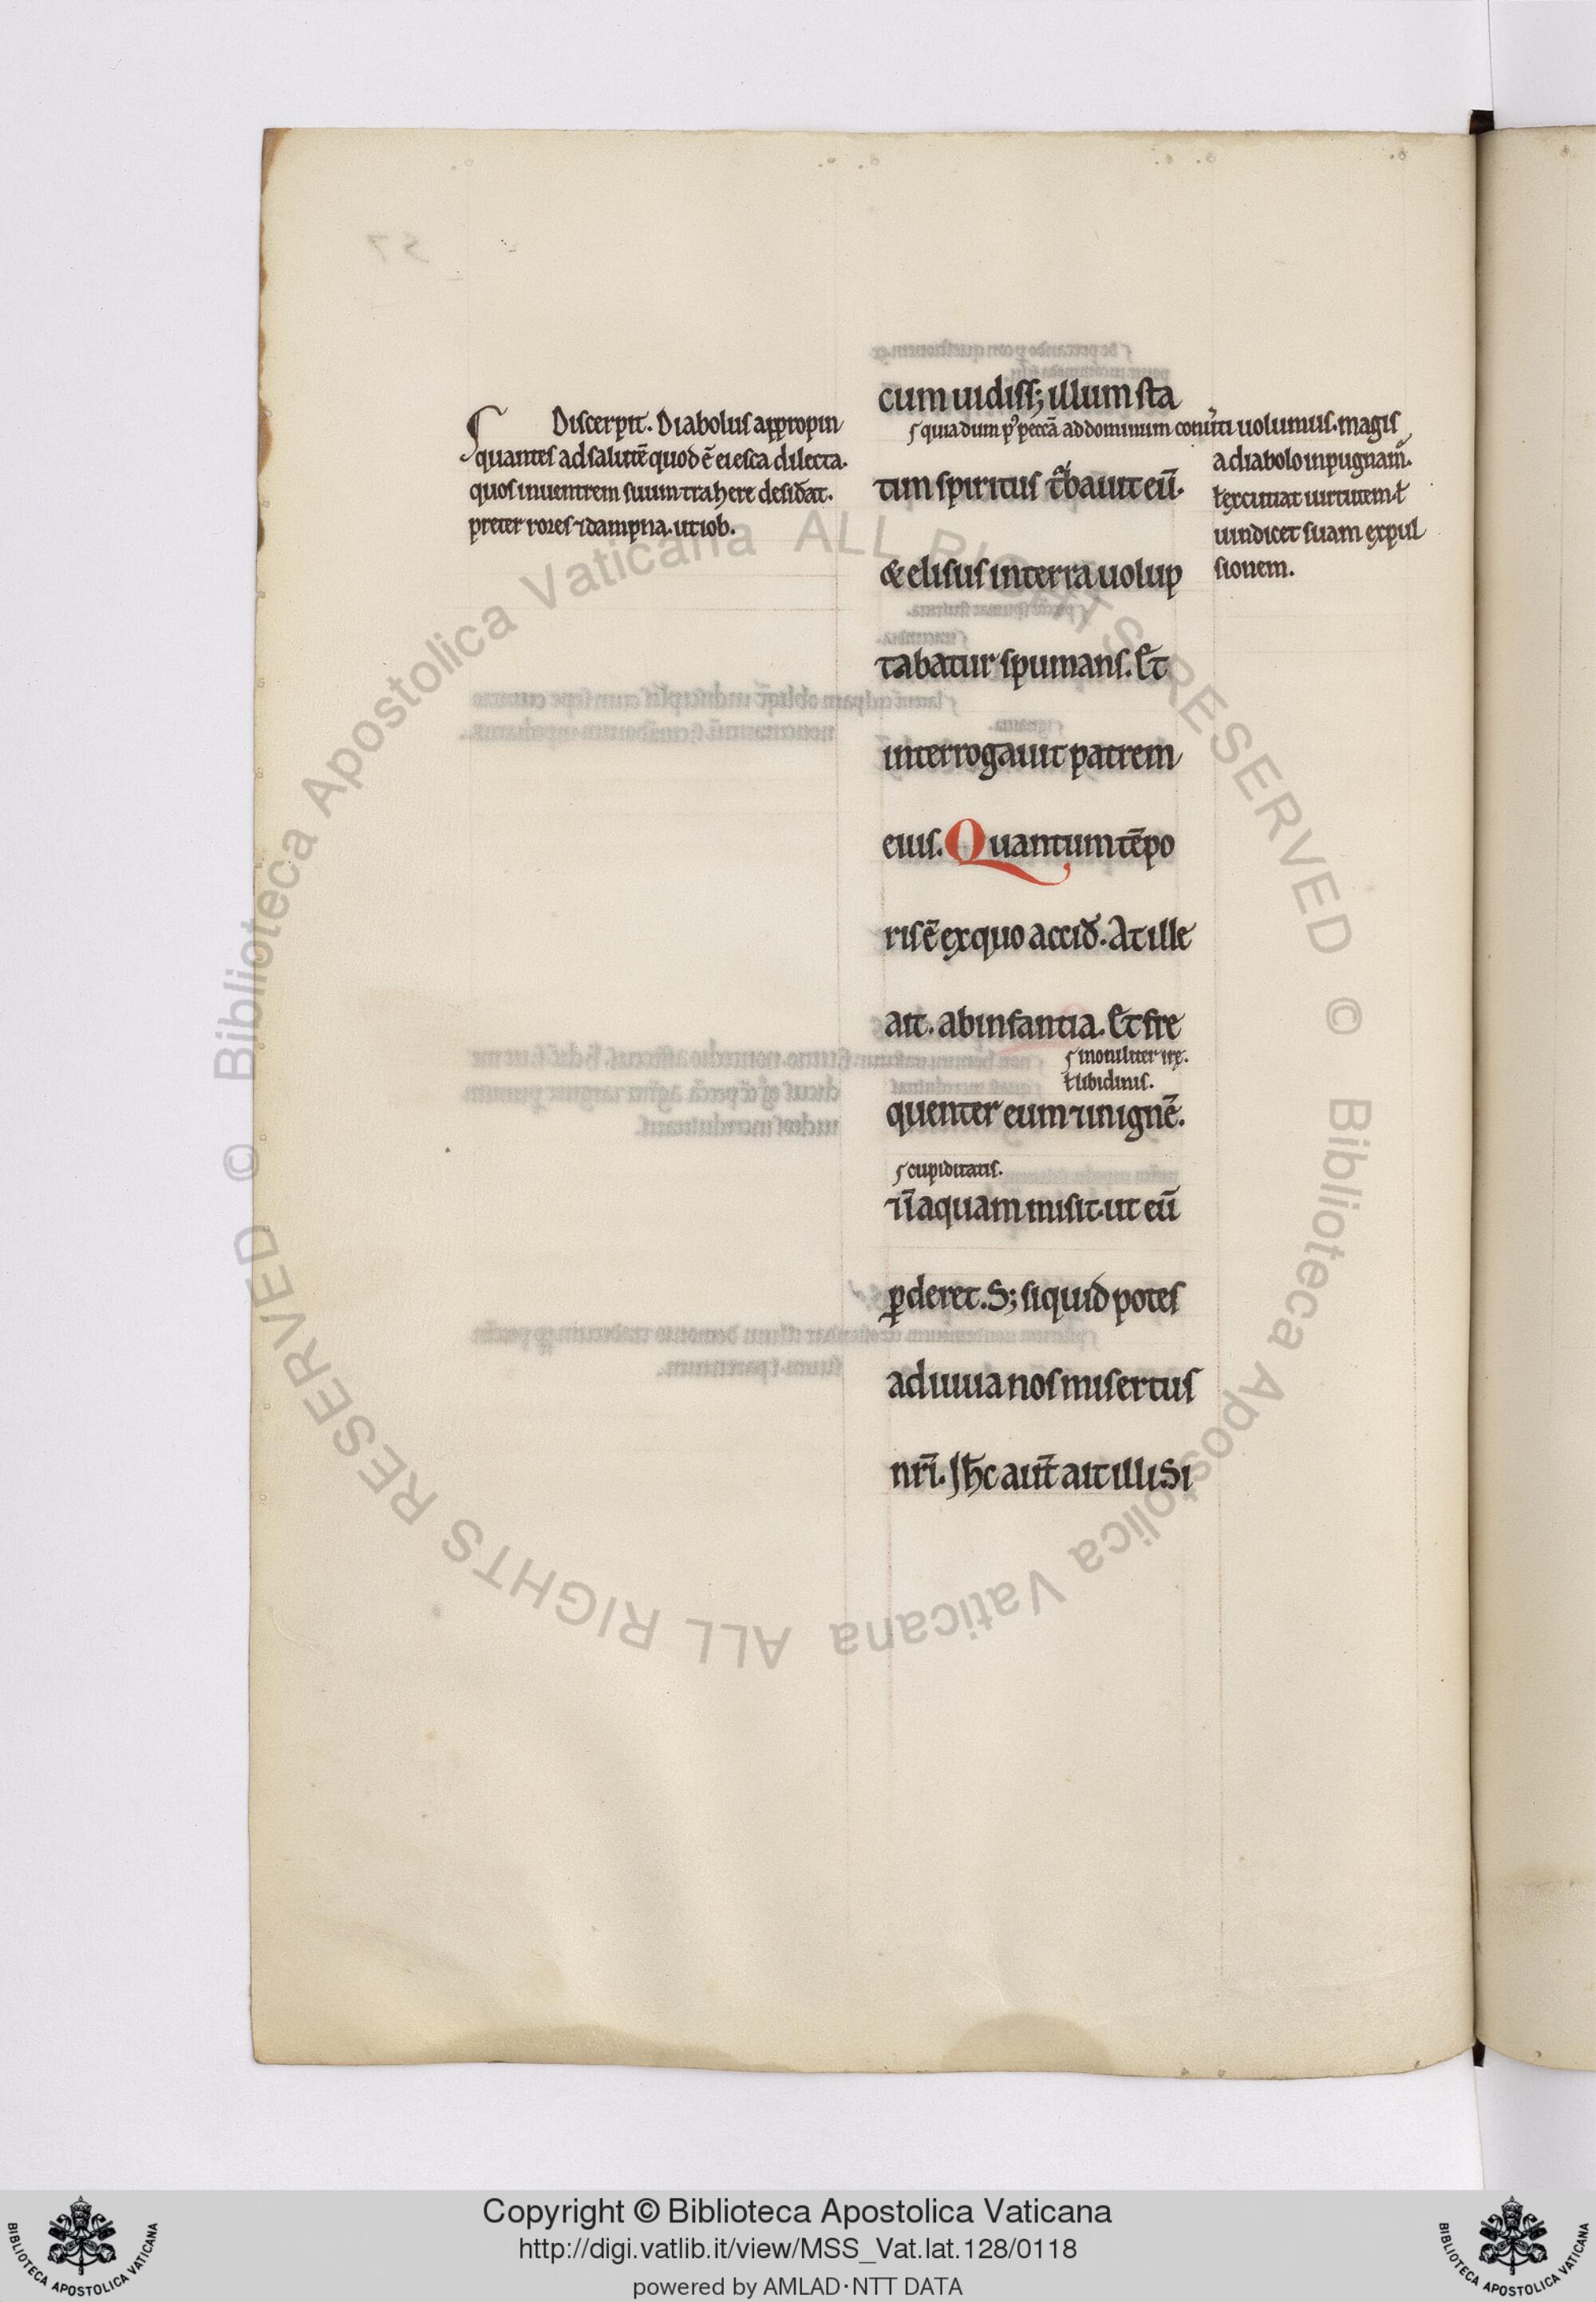 Discerpit. Diabolus appropin
quantes ad salutē quod ē ei esca dilecta.
quos in uentrem suum trahere desiđat.
preter rores ⁊ dampna. ut iob.
cum uidiss; illum sta
quia dum pꝰ peccā ad dominum conuti uolumus. magis
a diabolo inpugnam̄.
ł excutiat uirtutem ł
uindicet suam expul
sionem.
tim spiritus tͣbauit eū.
& elisus in terra uolup
tabatur spumans. Et
interrogauit patrem
eius. Quantum tēpo
ris ē ex quo acciđ. At ille
ait. ab infantia. Et fre
ł libidinis.
quenter eum ⁊ in ignē.
cupiditatis.
⁊ ī aquam misit. ut eū
ꝑderet. S; si quid potes
adiuua nos misertus
nr̄i. Ih̄c aut̄ ait illi. Si
Copyright © Biblioteca Apostolica Vaticana
http://digi.vatlib.it/view/MSS_Vat.lat.128/0118
powered by AMLAD·NTT DATA
© Biblioteca Apostolica Vaticana ALL RIGHTS RESERVED
© Biblioteca Apostolica Vaticana ALL RIGHTS RESERVED
BIBLIOTECA APOSTOLICA VATICANA
BIBLIOTECA APOSTOLICA VATICANA